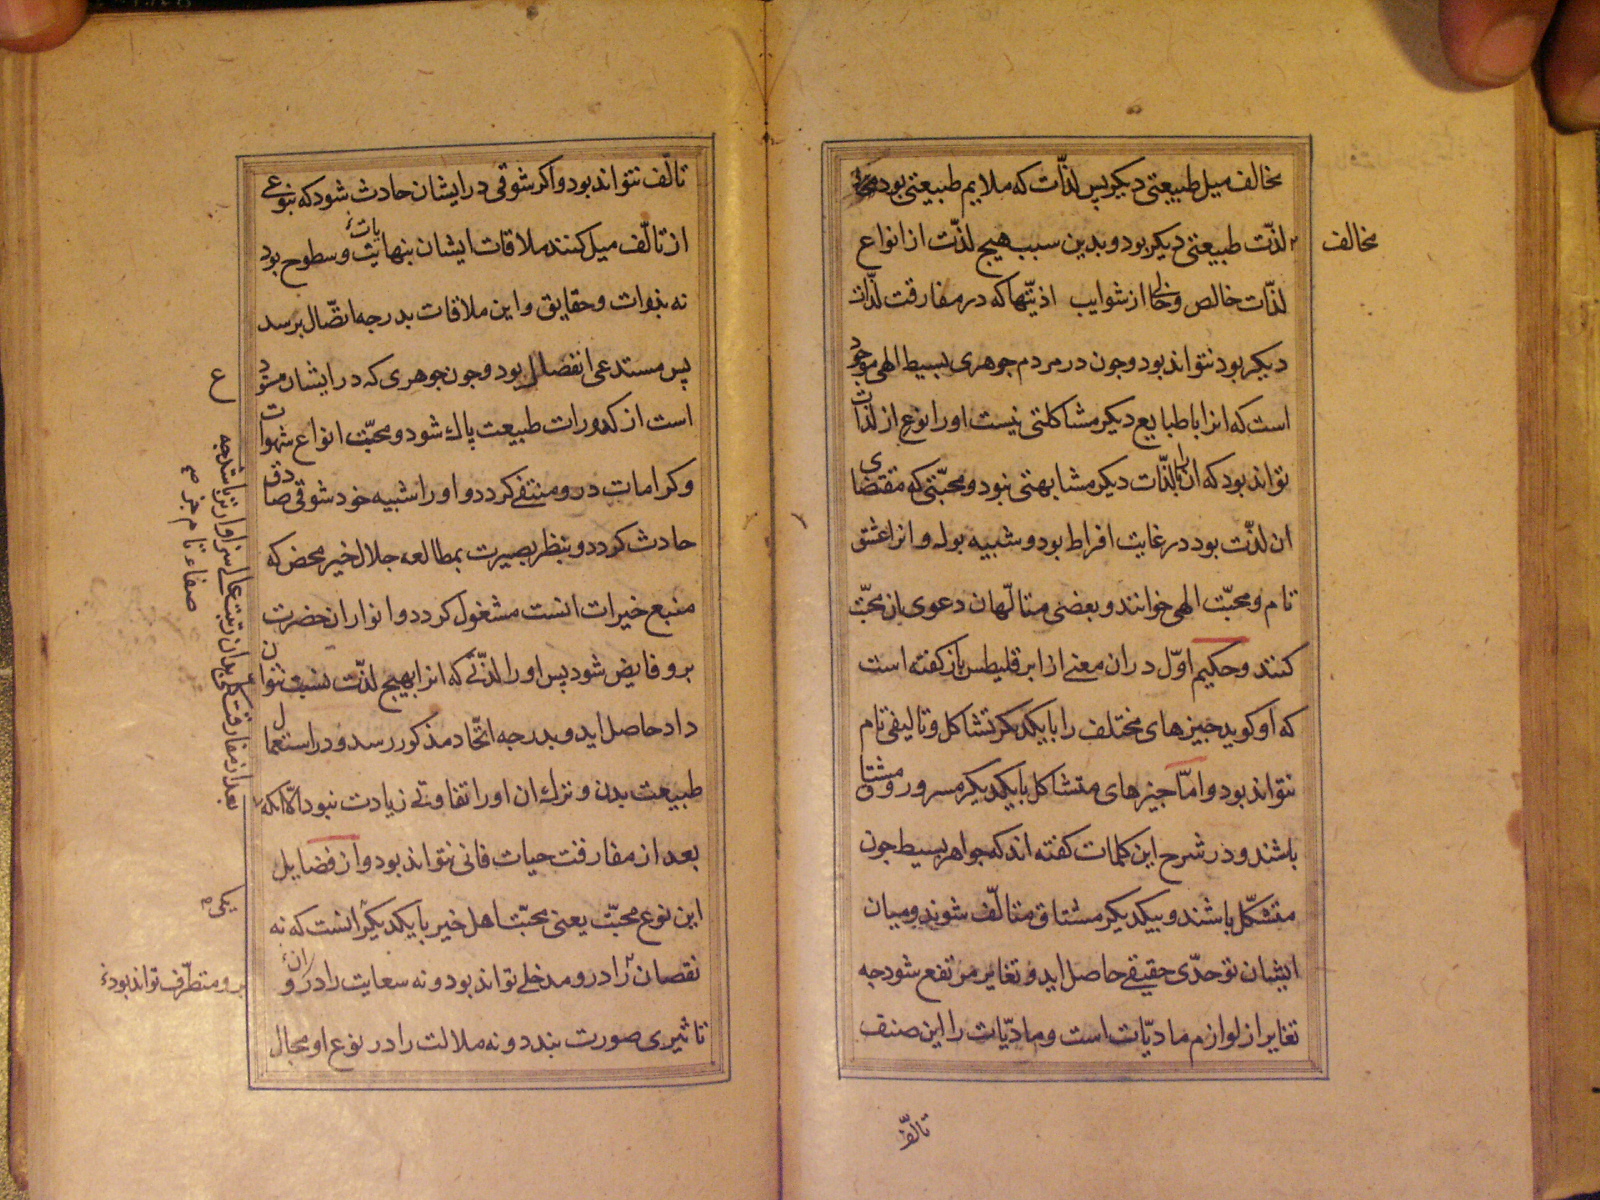 مخالف میل طبیعتی دیکر پس لذّات که ملایم طبیعتی بود
لذّت طبیعتی دیکر بود و بدین سبب هیچ لذّت از انواع
مخالف
لذّات خالص و خالی از شوایب اذیّتها که در مفارقت لذّات
دیکر بود نتواند بود و چون در مردم جوهری بسیط الهی موجود
است که انرا با طبایع دیکر مشاکلتی نیست او را نوعی از لذّات
تواند بود که انرا با لذّات دیکر مشابهتی نبود و محبّتی که مقتضای
ان لذّت بود در غایت افراط بود و شبیه بوله و انرا عشق
تام و محبّت الهی خوانند و بعضی متالّهان دعوی ان محبّت
کنند و حکیم اوّل در ان معنی از ابرقلیطس باز کفته است
که او کوید چیزهای مختلف را با یکدیکر تشاکل و تالیفی تام
نتواند بود و امّا چیزهای متشاکل با یکدیکر مسرور و مشتاق
باشند و در شرح این کلمات کفته اند که جواهر بسیط چون
متشکّل باشند و بیکدیکر مشتاق متالّف شوند و میان
ایشان توحدّی حقیقی حاصل اید و تغایر مرتفع شود چه
تغایر از لوازم مادیّات است و مادیّات را این صنف
تالّف
تالّف نتواند بود و اکر شوقی در ایشان حادث شود که بنوعی
از تالّف میل کنند ملاقات ایشان بنهایات و سطوح بود
نه بذوات و حقایق و این ملاقات بدرجه اتّصال برسد
پس مستدعی انفصال بود و چون جوهری که در ایشان مستودع
است از کدورات طبیعت پاك شود و محبّت انواع شهوات
و کرامات در و منتفی کردد و او را شبیه خود شوقی صادق
حادث کردد و بنظر بصیرت بمطالعه جلال خیر محض که
منبع خیرات انست مشغول کردد و انوار ان حضرت
برو فایض شود پس او را لذّتی که انرا بهیچ لذّت نسبت نتوان
داد حاصل اید و بدرجه اتّحاد مذکور رسد و در استعمال
طبیعت بدن و ترك ان او را تفاوتی زیادت نبود الّا انکه
بعد از مفارقت حیات فانی نتواند بود و از فضایل
این نوع محبّت یعنی محبّت اهل خیر با یکدیکر انست که نه
نقصان را در و مدخلی تواند بود و نه سعایت را در ان
تاثیری صورت بندد و نه ملالت را در نوع او مجال
بعد از مفارقت کلّی بدان رتبت عالی سزاوارتر باشد چه
صفاء تام جز
یکی
برو متطرّف تواند بود